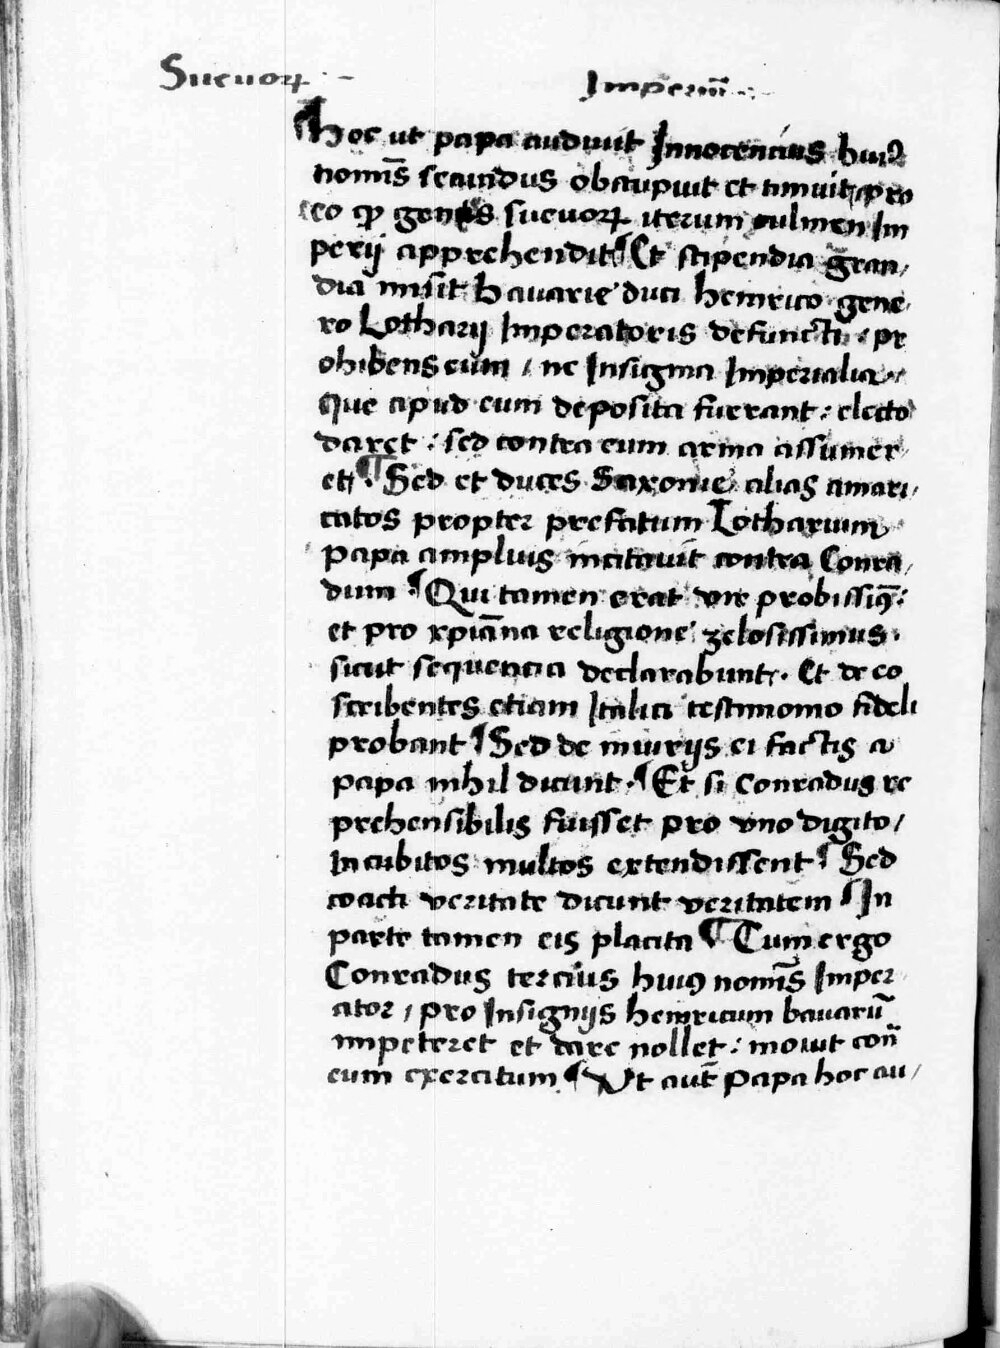 Sueuoꝝ Imperiū
¶ Hoc ut papa audiuit Innocencius huiꝰ
nomīs secundus obstupuit et timuit pro
eo ꝙ gentis sueuoꝝ iterum culmen Im
perij apprehendit ¶ Et stipendia gran/
dia misit Bauarie duci heinrico gene/
ro Lotharij Imperatoris defuncti / pr
ohibens eum / ne Insignia Imperialia
que apud eum deposita fuerant : electo
daret : sed contra eum arma assumer
et / ¶ Sed et duces Saxonie alias amari/
catos propter prefatum Lotharium
papa amplius incitauit contra Conra/
dum ¶ Qui tamen erat vir probissimꝰ :
et pro xpiāna religione zelosissimus .
sicut sequencia declarabunt . Et de eo
scribentes etiam Italici testimonio fideli
probant ¶ Sed de iniurijs ei factis a
papa nihil dicunt . ¶ Et si Conradus re
prehensibilis fuisset pro vno digito /
in cubitos multos extendissent ¶ Sed
coacti veritate dicunt veritatem ¶ In
parte tamen eis placita ¶ Cum ergo
Conradus tercius huiꝰ nomīs Imper
ator / pro Insignijs heinricum bauarū
impeteret et dare nollet : mouit con̄
eum exercitum ¶ Vt aut̄ Papa hoc au/